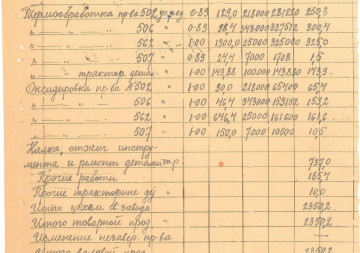 Термообработка пр-ва 502 усред. 0-89 129,0 218000 281220 250,3
" — " — 506 " 0-89 98,4 243000 237572 300,4
" — " — 562 " 1-00 1300,0 25000 325000 325,0
" — " — 507 " 0-89 24,4 7000 1708 1,5
" — " трактор. дет. 1-00 143,88 100,000 143880 143,9
Оксидировка пр-ва А 502 " 1-00 30,0 218000 65400 65,4
" — " — 506 " 1-00 46,4 343000 159152 159,2
" — " — 562 " 1-00 646,4 25000 161600 161,6
" — " — 507 " 1-00 150,0 7000 10500 10,5
Налка, отжиг инстру-
мента и ремонт деталей тр. 737,0
Прочие работы 185,4
Прочие тракторные д/ 10,0
Итого цехам св. завода 2350,2
Итого товарной прод " 2350,2
Изменение незавер. пр-ва —
Итого валовой прод. 2350,2